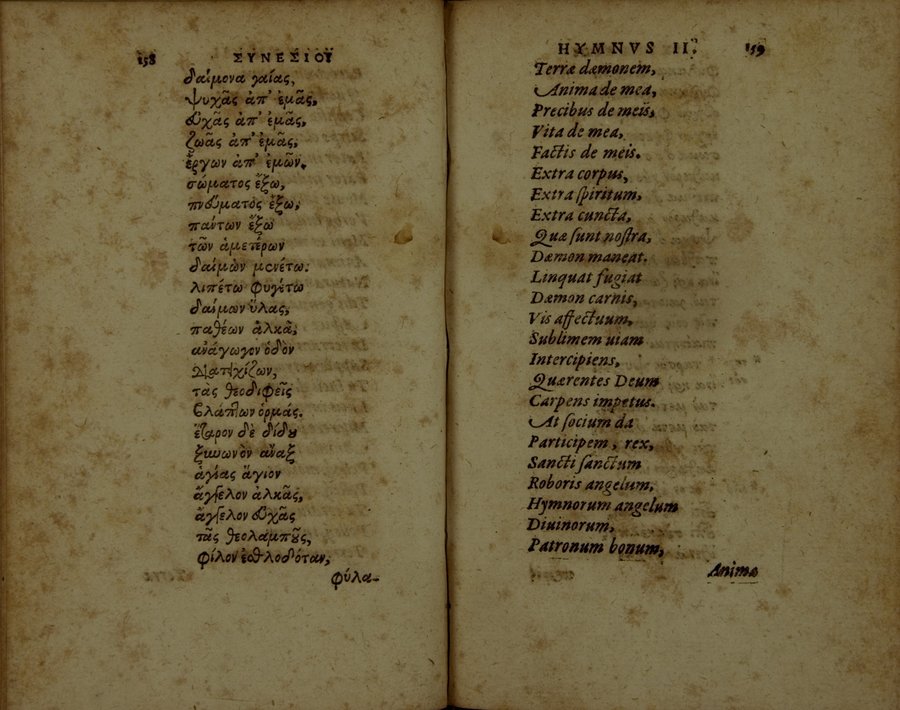 158 ΣΥΝΕΣΙΟΥ
δαίμονα γαίας,
ψυχᾶς ἀπ' ἐμᾶς,
εὐχᾶς ἀπ' ἐμᾶς,
ζωᾶς ἀπ' ἐμᾶς,
ἔργων ἀπ' ἐμῶν.
σώματος ἔξω,
πνεύματος ἔξω,
πάντων ἔξω
τῶν ἁμετέρων
δαίμων μενέτω.
λιπέτω φυγέτω
δαίμων ὕλας,
παθέων ἀλκὰ,
ἀνάγωγον ὁδὸν
διατειχίζων,
τὰς θεοδιφεῖς
βλάπτων ὁρμάς.
ἕταρον δὲ δίδου
ξυνωνὸν ἄναξ
ἁγίας ἅγιον
ἄγγελον ἀλκᾶς,
ἄγγελον εὐχᾶς
τᾶς θεολαμποῦς,
φίλον ἐσθλοδόταν,
φύλα-
HYMNVS II. 159
Terræ dæmonem,
Anima de mea,
Precibus de meis,
Vita de mea,
Factis de meis.
Extra corpus,
Extra spiritum,
Extra cuncta,
Quæ sunt nostra,
Dæmon maneat.
Linquat fugiat
Dæmon carnis,
Vis affectuum,
Sublimem uiam
Intercipiens,
Quærentes Deum
Carpens impetus.
At socium da
Participem, rex,
Sancti sanctum
Roboris angelum,
Hymnorum angelum
Diuinorum,
Patronum bonum,
Animæ